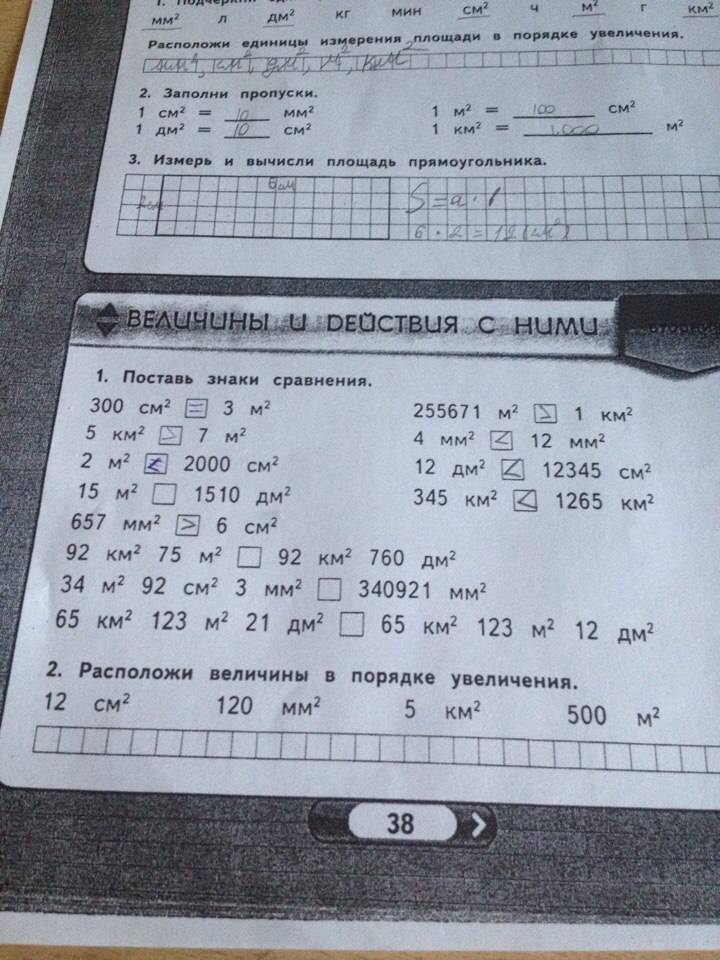 1. Подчеркни
мм² л дм² кг мин см² ч м² г км²
Расположи единицы измерения площади в порядке увеличения.
мм², см², дм², м², км²
2. Заполни пропуски.
1 см² = 10 мм² 1 м² = 100 см²
1 дм² = 10 см² 1 км² = 1000 м²
3. Измерь и вычисли площадь прямоугольника.
6 см
2 см S = a ·
6 · 2 = 12 (см²)
ВЕЛИЧИНЫ И ДЕЙСТВИЯ С НИМИ
1. Поставь знаки сравнения.
300 см² = 3 м² 255671 м² > 1 км²
5 км² > 7 м² 4 мм² < 12 мм²
2 м² 2000 см² 12 дм² < 12345 см²
15 м² 1510 дм² 345 км² < 1265 км²
657 мм² > 6 см²
92 км² 75 м² 92 км² 760 дм²
34 м² 92 см² 3 мм² 340921 мм²
65 км² 123 м² 21 дм² 65 км² 123 м² 12 дм²
2. Расположи величины в порядке увеличения.
12 см² 120 мм² 5 км² 500 м²
38